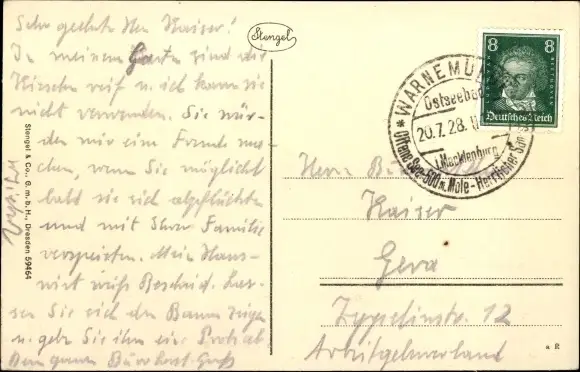 Sehr geehrter Herr Kaiser!
In meinem Garten sind die
Kirschen reif u. ich kann sie
nicht verwenden. Sie wür-
den mir eine Freude ma-
chen, wenn Sie möglichst
bald sie sich abpflückten
und mit Ihrer Familie
verspeisten. Mein Haus-
wirt weiß Bescheid. Las-
sen Sie sich den Baum zeigen
u. geben Sie ihm eine Probe ab.
Stengel & Co., G. m. b. H., Dresden 59464
Stengel
WARNEMÜNDE
Ostseebad
20.7.28.
i. Mecklenburg
Offene See - 500 m. Mole - Herrlicher
8 8
BEETHOVEN
Deutsches Reich
Herrn
Kaiser
Gera
Zeppelinstr. 12